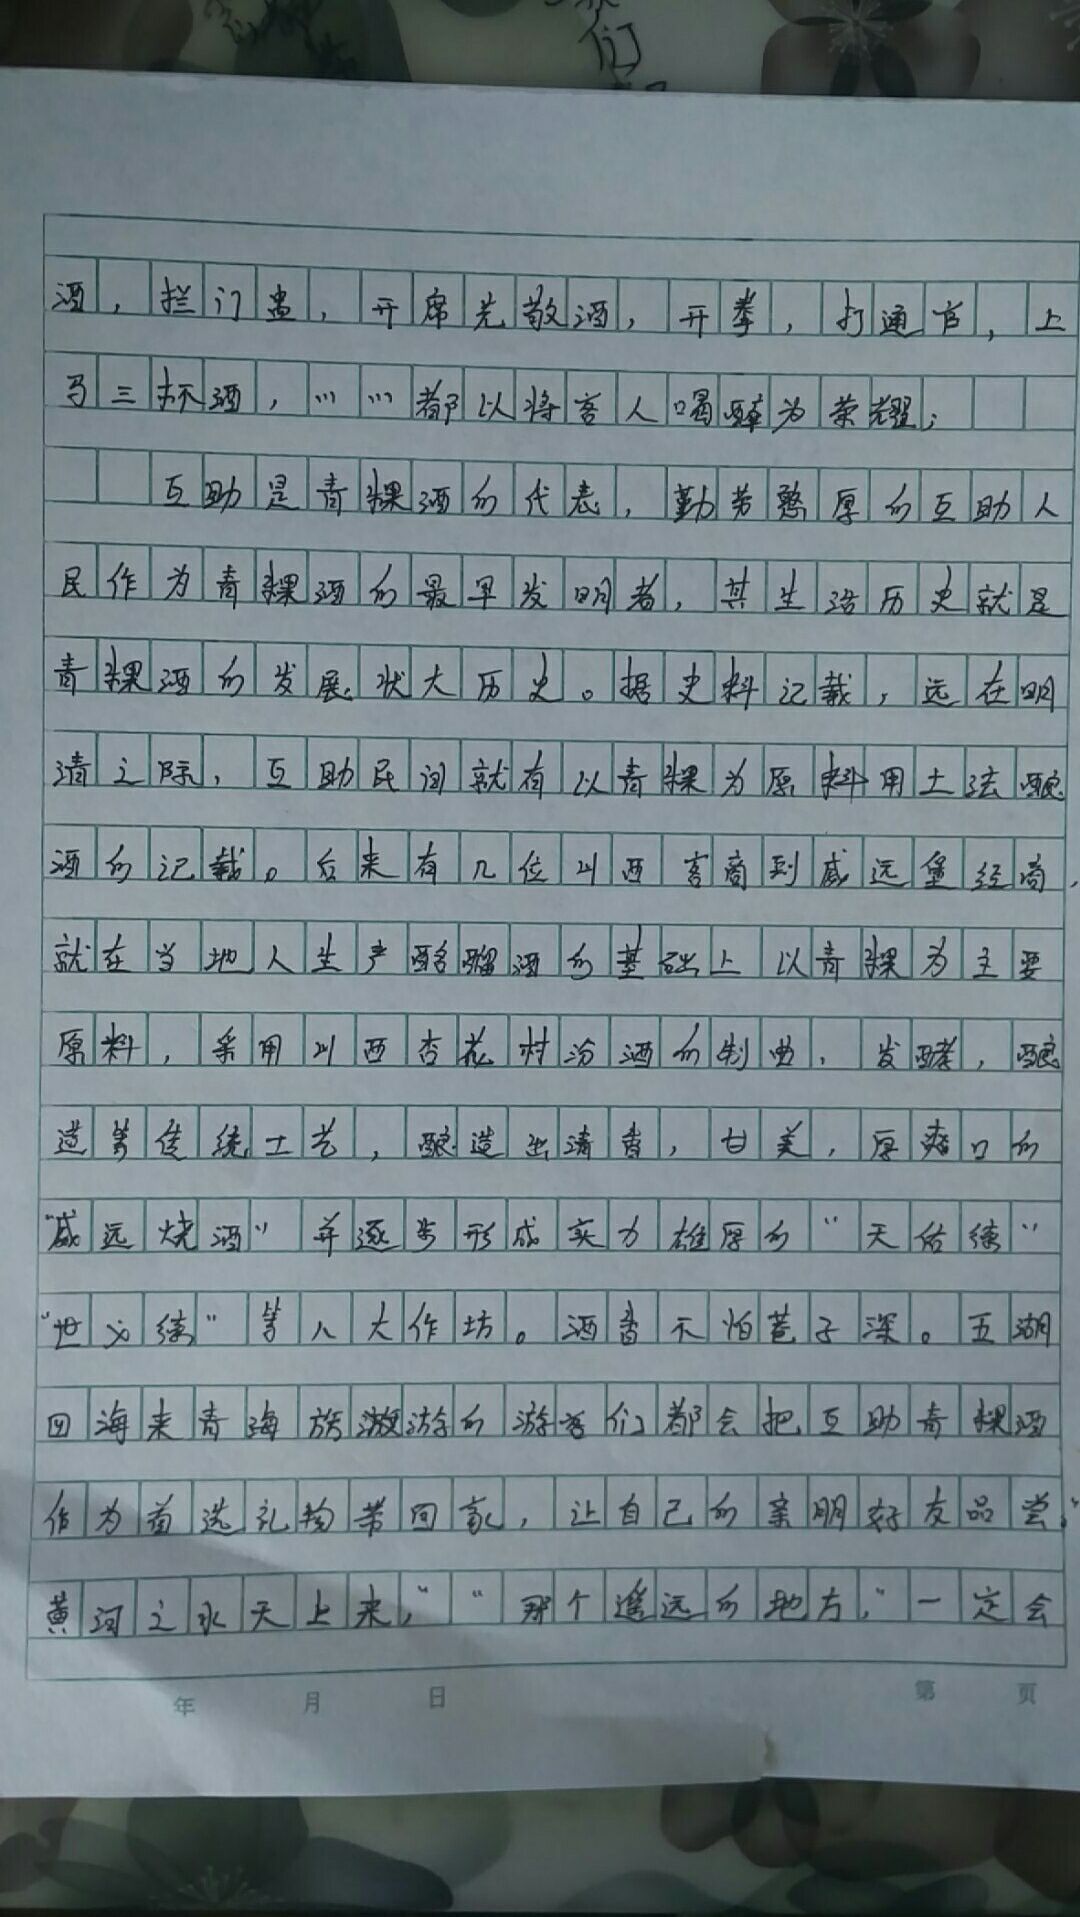 们
酒，拦门盅，开席先敬酒，开拳，打通官，上
马三杯酒，……都以将客人喝醉为荣耀；
互助是青稞酒的代表，勤劳憨厚的互助人
民作为青稞酒的最早发明者，其生活历史就是
青稞酒的发展状大历史。据史料记载，远在明
清之际，互助民间就有以青稞为原料用土法酿
酒的记载。后来有几位山西客商到威远堡经商，
就在当地人生产酩醯酒的基础上以青稞为主要
原料，采用山西杏花村汾酒的制曲，发酵，酿
造等传统工艺，酿造出清香，甘美，厚爽口的
“威远烧酒”并逐步形成实力雄厚的“天佑德”
“世义德”等八大作坊。酒香不怕巷子深。五湖
四海来青海旅游的游客们都会把互助青稞酒
作为首选礼物带回家，让自己的亲朋好友品尝。“
黄河之水天上来，”“那个遥远的地方，”一定会
年 月 日 第 页